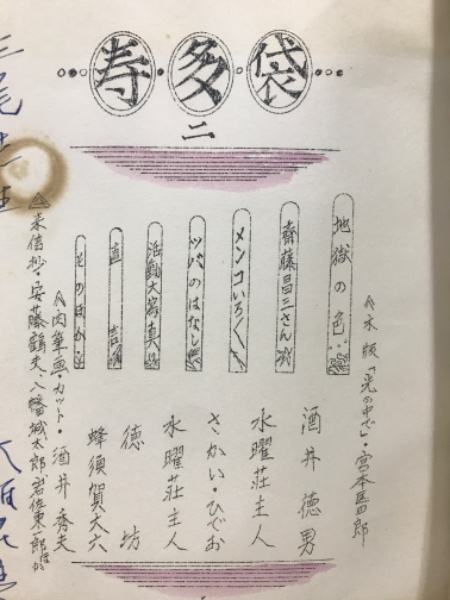 寿多袋
二
木版「光の中で」・宮本匡四郎
地獄の色
酒井徳男
齋藤昌三さん
水曜荘主人
メンコいろく
さかい・ひでお
ツバのはなし
水曜荘主人
活動大写真
徳坊
直吉
蜂須賀大六
そのほか
肉筆画・カット・酒井秀夫
来信抄・安藤鶴夫、八幡城太郎、岩佐東一郎ほか